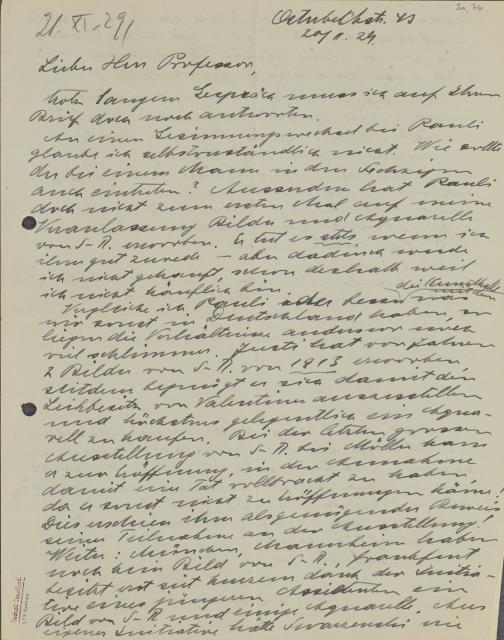 3a, 76
21. XI. 29
Osterbekstr. 43
20/11. 29.
Lieber Herr Professor,
trotz langem Gespräch muss ich auf Ihren
Brief doch noch antworten.
An einen Gesinnungswechsel bei Pauli
glaube ich selbstverständlich nicht. Wie sollte
der bei einem Mann in den Sechzigern
auch eintreten? Ausserdem hat Pauli
doch nicht zum ersten Mal auf meine
Veranlassung Bilder und Aquarelle
von S-R. erworben. Er tut es stets wenn ich
ihm gut zurede – aber dadurch werde
ich nicht gekauft, schon deshalb weil
ich nicht käuflich bin.
die Kunsthalle
Vergleiche ich Pauli oder besser
wir sonst in Deutschland haben, so
liegen die Verhältnisse anderswo noch
viel schlimmer. Justi hat vor Jahren
2 Bilder von S-R. von 1913 erworben
seitdem begnügt er sich damit den
Leihbesitz von Valentiner auszustellen
und höchstens gelegentlich ein Aqua-
rell zu kaufen. Bei der letzten grossen
Ausstellung von S-R. bei Möller kam
er zur Eröffnung, in der Annahme
damit eine Tat vollbracht zu haben,
da er sonst nicht zu Eröffnungen käme!
Dies erschien ihm als genügender Beweis
seiner Teilnahme an der Ausstellung!
Weiter: München, Mannheim haben
noch kein Bild von S-R., Frankfurt
besitzt erst seit kurzem dank der Initia-
tive eines jüngeren Assistenten ein
Bild von S-R und einige Aquarelle. Aus
eigener Initiative hätte Swarzenski nie